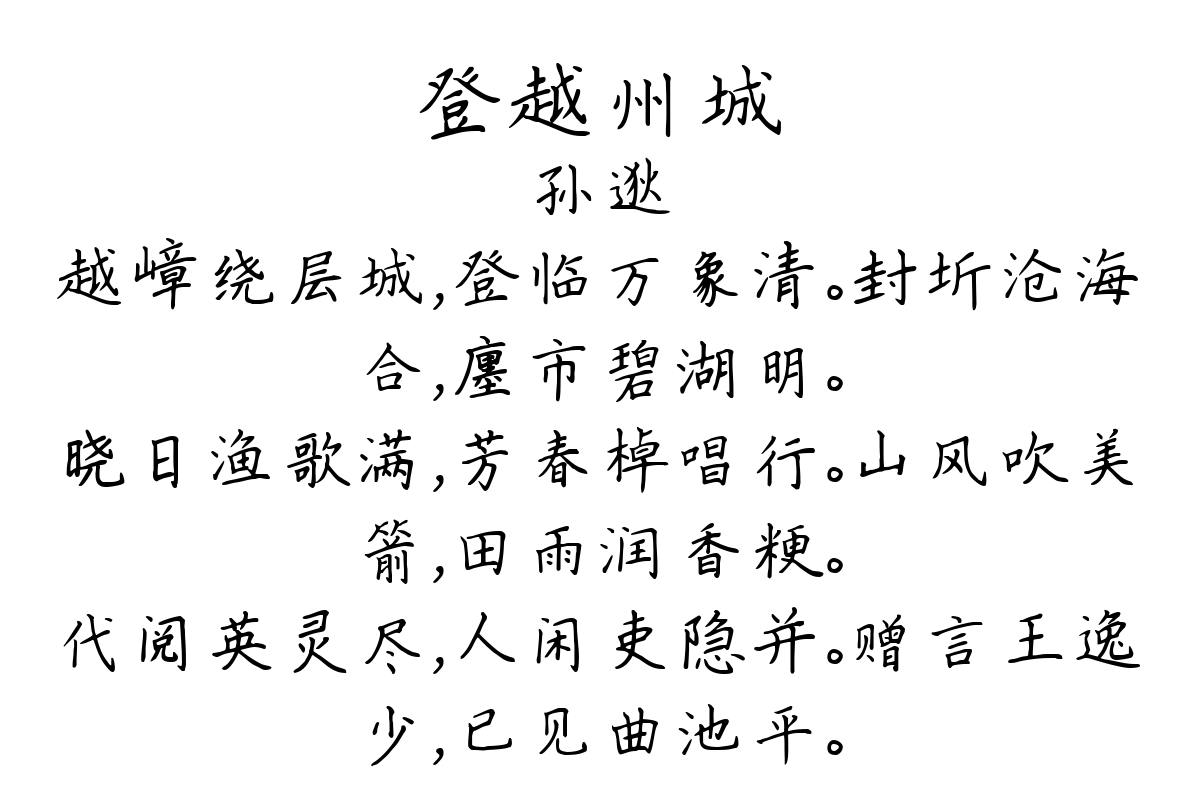 登越州城
孙逖
越嶂绕层城,登临万象清。封圻沧海
合,廛市碧湖明。
晓日渔歌满,芳春棹唱行。山风吹美
箭,田雨润香粳。
代阅英灵尽,人闲吏隐并。赠言王逸
少,已见曲池平。